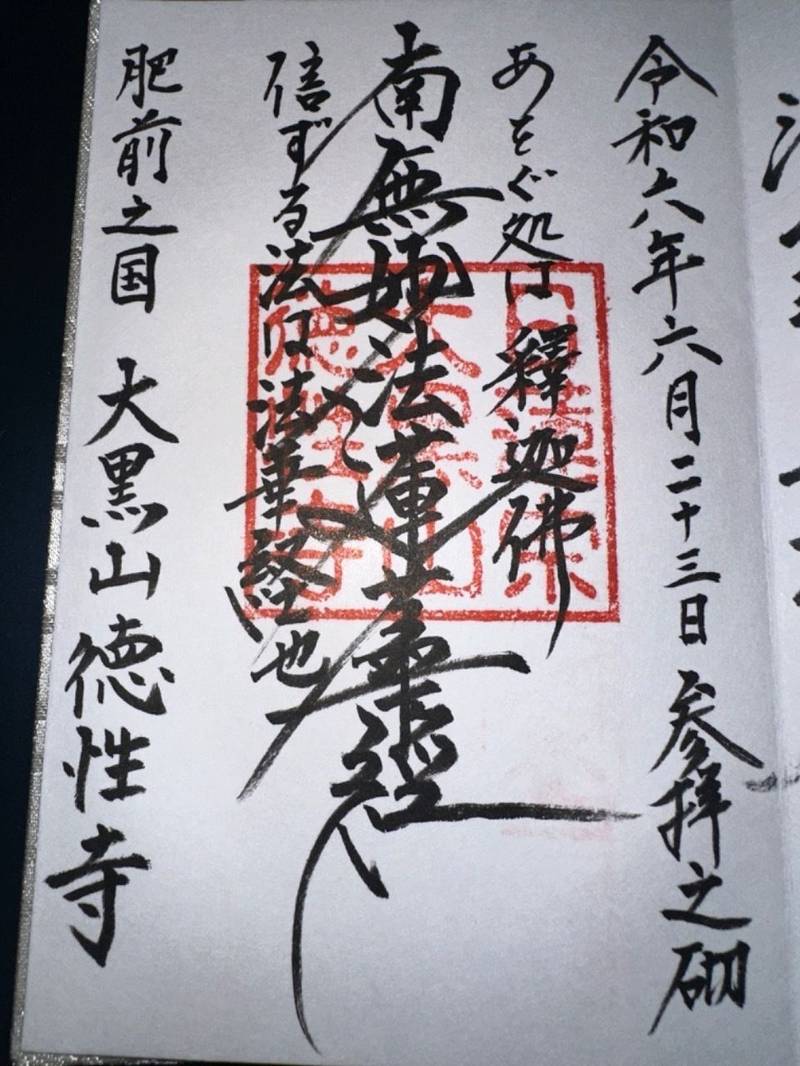 令和六年六月二十三日 参拝之砌
あをぐ処は 釋迦佛
南無妙法蓮華經
信ずる法は法華経也
肥前之国 大黒山徳性寺
日蓮宗
大黒山
徳性寺